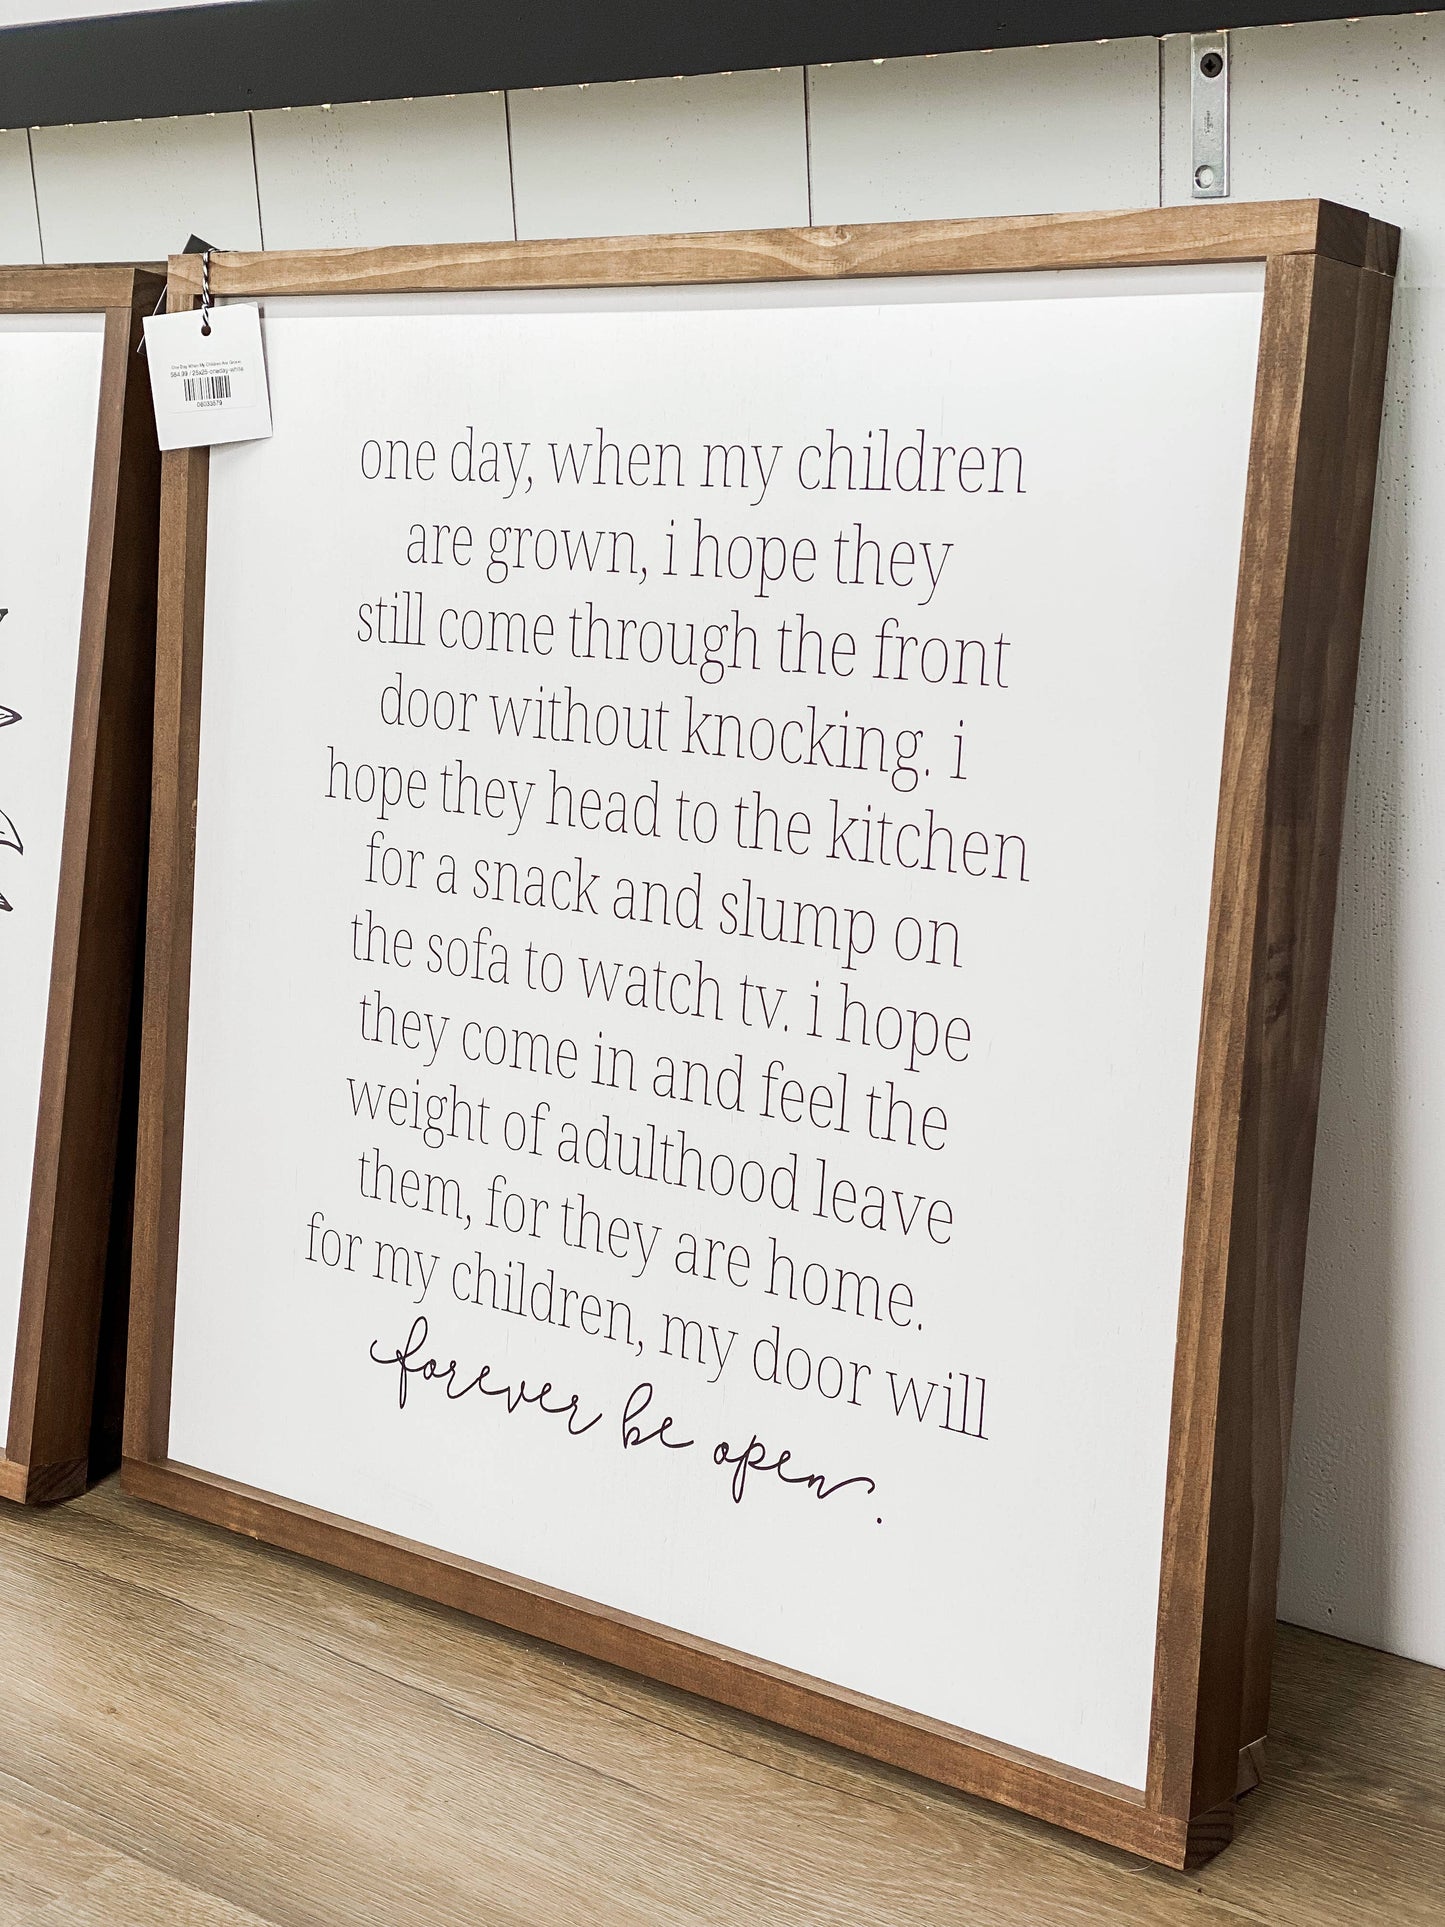 One Day When My Children Are Grown
$84.99 / 25x25-oneday-white
06033579
one day, when my children
are grown, i hope they
still come through the front
door without knocking. i
hope they head to the kitchen
for a snack and slump on
the sofa to watch tv. i hope
they come in and feel the
weight of adulthood leave
them, for they are home.
for my children, my door will
forever be open.